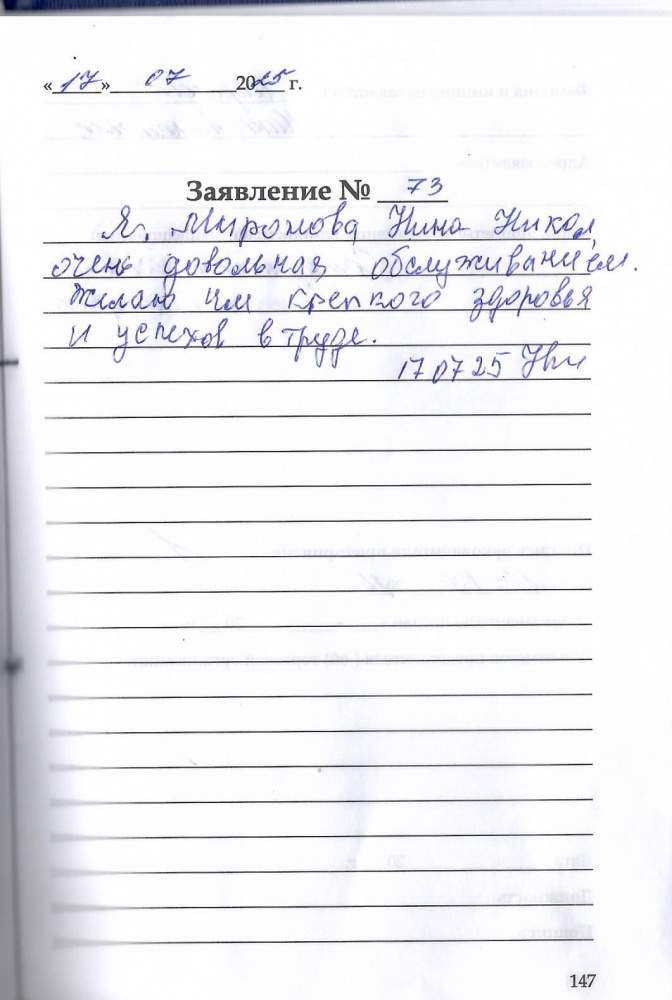 «17» 07 2025 г.
Заявление № 73
Я, Миронова Нина Никол
очень довольная обслуживанием.
Желаю им крепкого здоровья
и успехов в труде.
17 07 25
147